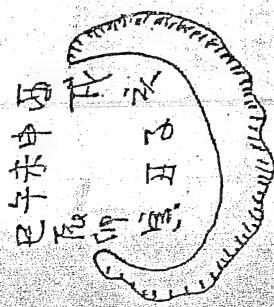 巳午未申酉
辰 戌
卯
寅丑子亥